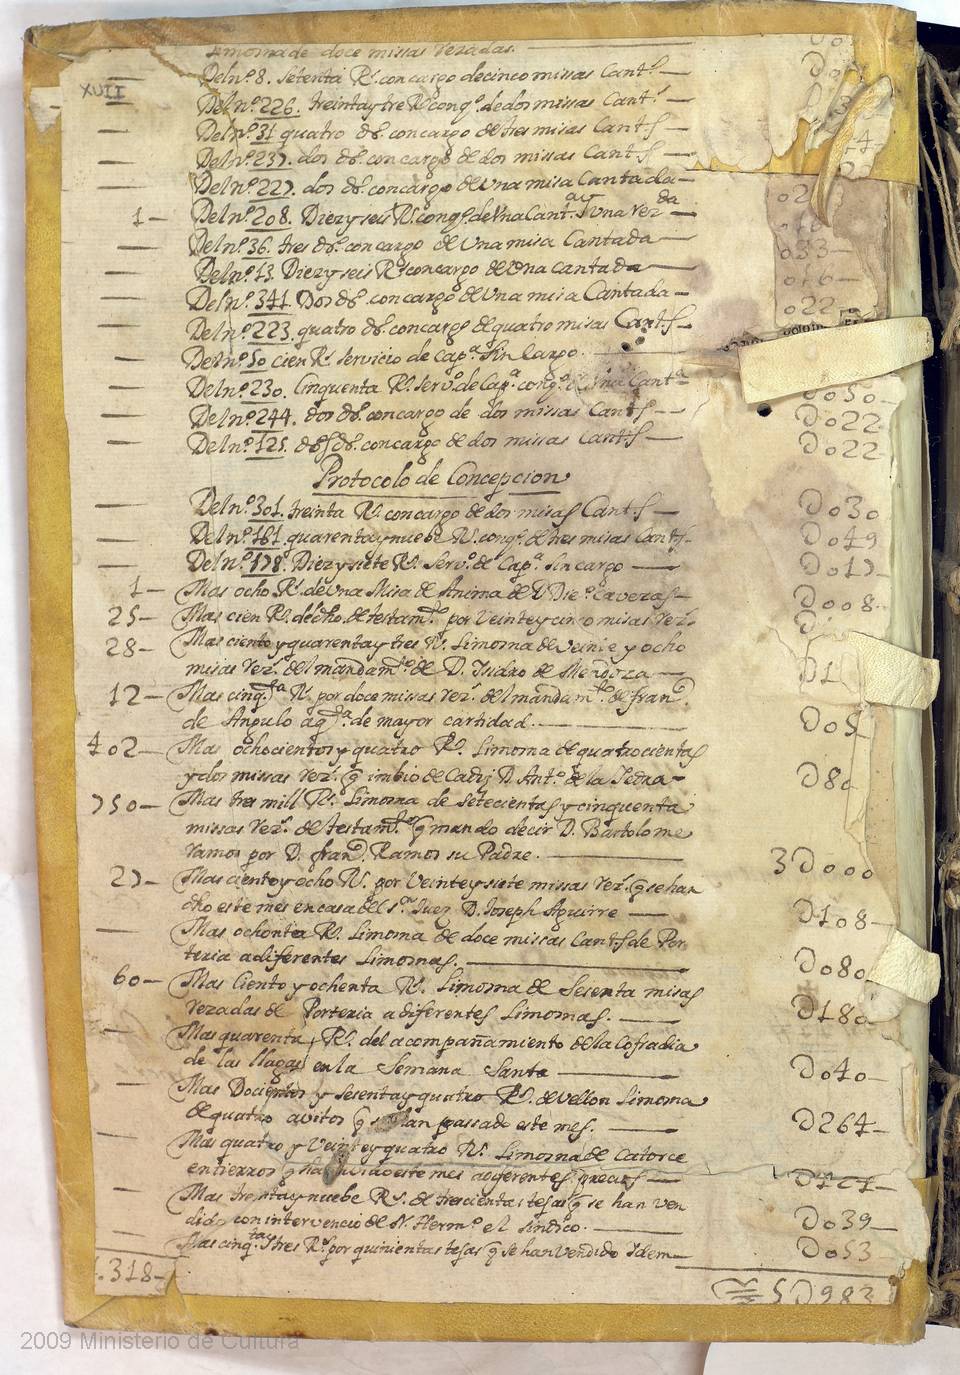 Limosna de doce missas rezadas. —
XVII
— Del nº 8. setenta Rˢ. con cargo de cinco missas Cantˢ —
— Del nº 226. treinta y tre Rˢ congº. de dos missas Cantˢ —
— Del nº 31 quatro dˢ. con cargo de tres misas Cantˢ —
— Del nº 237. dos dˢ. con cargo de dos missas Cantˢ —
— Del nº 227. dos dˢ. con cargo de Una misa Cantada — 022
1 — Del nº 208. Diez y seis Rˢ. congº de Una Cantᵃᵈᵃ y Una rezᵈᵃ — 016
— Del nº 36. tres dˢ. con cargo de Una misa Cantada — 033 —
— Del nº 13. Diez y seis Rˢ con cargo de Una cantada — 016 —
— Del nº 341. Dos dˢ. con cargo de Una misa Cantada — 022 —
— Del nº 223. quatro dˢ. con cargo de quatro misas Cantˢ —
— Del nº 50 cien Rˢ. servicio de Capª. sin Cargo. —
— Del nº 230. Cinquenta Rˢ. servº. de Capª. congº. de Una Cantᵃ — D050 —
— Del nº 244. dos dˢ. con cargo de dos missas Cantˢ — D022
— Del nº 125. dos dˢ. con cargo de dos missas Cantˢ — D022
Protocolo de Concepcion
— Del nº 301. treinta Rˢ. con cargo de dos misas Cantˢ — D030
— Del nº 161. quarenta y nuebe Rˢ. congº. de tres misas Cantˢ — D049
— Del nº 178. Diez y siete Rˢ. servº. de Capª. sin cargo — D017 —
1 — Mas ocho Rˢ. de Una Misa de Anima de D Dieº. Caveras — D008.
25 — Mas cien Rˢ. de dho. de testamᵗᵒ. por Veinte y cinco misas rezˢ.
28 — Mas ciento y quarenta y tres Rˢ. Limosna de veinte y ocho
misas rezˢ. del mandamᵗᵒ. de D. Isidro de Mendoza —
12 — Mas cinqᵗᵃ Rˢ. por doce missas rezˢ. del mandamᵗᵒ. de franᶜᵒ.
de Angulo a qᵗᵃ. de mayor cantidad. — D05
402 — Mas ochocientos y quatro Rˢ. Limosna de quatrocientas
y dos missas rezˢ. q imbio de Cadiz D. Antº. de la Piedra — D80
750 — Mas tres mill Rˢ. Limosna de setecientas y cinquenta
missas rezˢ. de testamᵗᵒ. q mando decir D. Bartolome
ramos por D. franᶜᵒ. Ramos su Padre. — 3D000
27 — Mas ciento y ocho Rˢ. por Veinte y siete missas rezˢ. q se han
dho este mes en casa del Sʳ. Juez D. Joseph Aguirre — D108 —
— Mas ochenta Rˢ. Limosna de doce missas Cantˢ de Por
teria a diferentes Limosnas. — D080
60 — Mas Ciento y ochenta Rˢ. Limosna de Sesenta misas
rezadas de Porteria a diferentes Limosnas. — D180
— Mas quarenta Rˢ. del acompañamiento de la Cofradia
de las llagas en la Semana Santa — D040 —
— Mas Docientos y sesenta y quatro Rˢ. de vellon Limosna
de quatro avitos q se han passado este mes. — D264 —
— Mas quatro y Veinte y quatro Rˢ. Limosna de Catorce
entierros q ha havido este mes a diferentes precios — D424 —
— Mas treinta y nuebe Rˢ. de trescientas tejas q se han ven
dido con intervenció de N. Hermº el sindico. — D039 —
— Mas cinqᵗᵃ y tres Rˢ. por quinientas tejas q se han Vendido Idem — D053
.1318 — 5D983
2009 Ministerio de Cultura